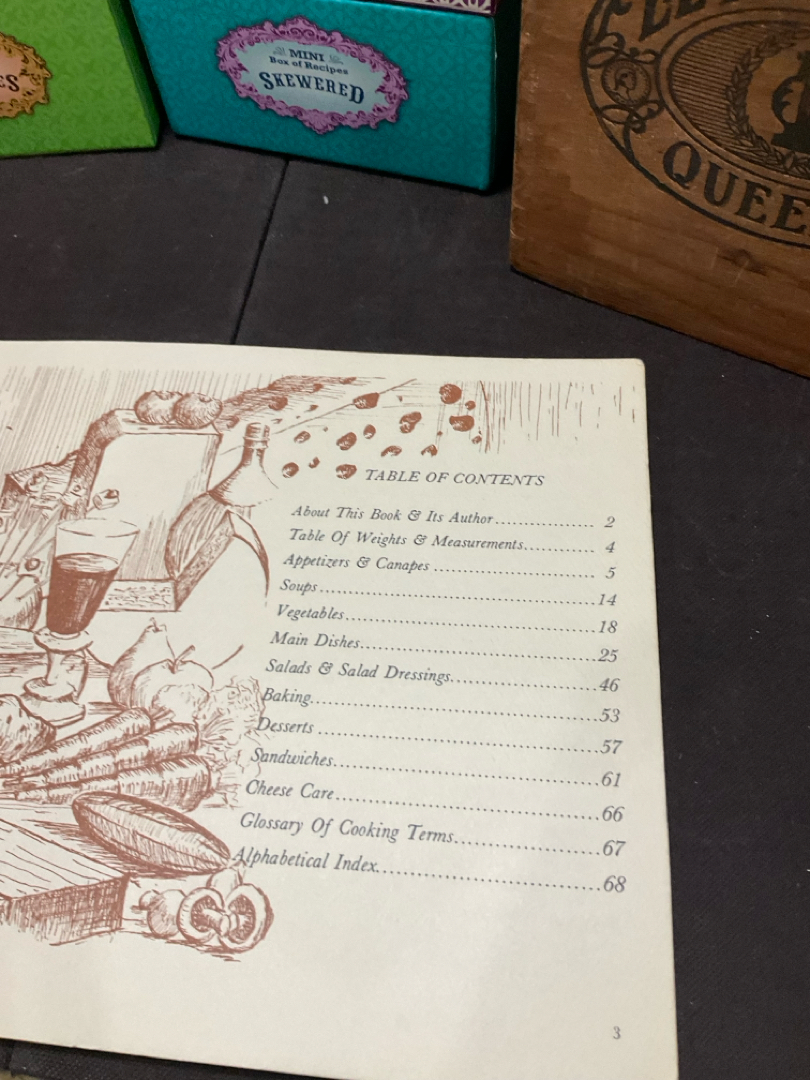 MINI
Box of Recipes
SKEWERED
ES
QUEE
TABLE OF CONTENTS
About This Book & Its Author.............................. 2
Table Of Weights & Measurements................. 4
Appetizers & Canapes ....................................... 5
Soups ..................................................................14
Vegetables...........................................................18
Main Dishes........................................................25
Salads & Salad Dressings...................................46
Baking.................................................................53
Desserts ..............................................................57
Sandwiches.........................................................61
Cheese Care........................................................66
Glossary Of Cooking Terms...............................67
Alphabetical Index..............................................68
3